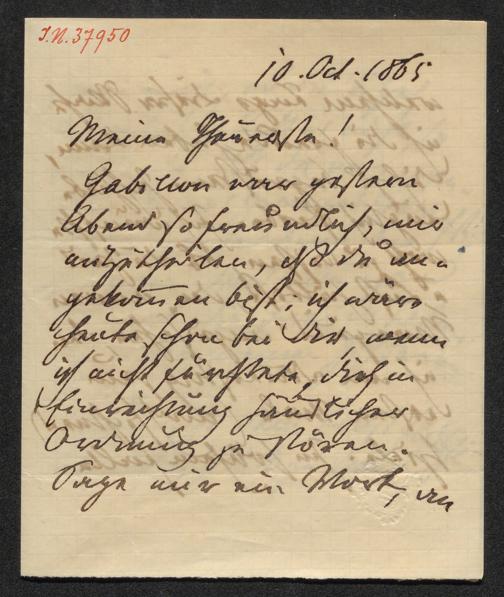 I.N. 37950
10. Oct. 1865
Meine Theuerste!
Gabillon war gestern
Abend so freundlich, mir
mitzutheilen, daß du an-
gekommen bist; ich wäre
heute schon bei dir, wenn
ich nicht fürchtete, dich in
Einrichtung häuslicher
Ordnung zu stören.
Sage mir ein Wort, an